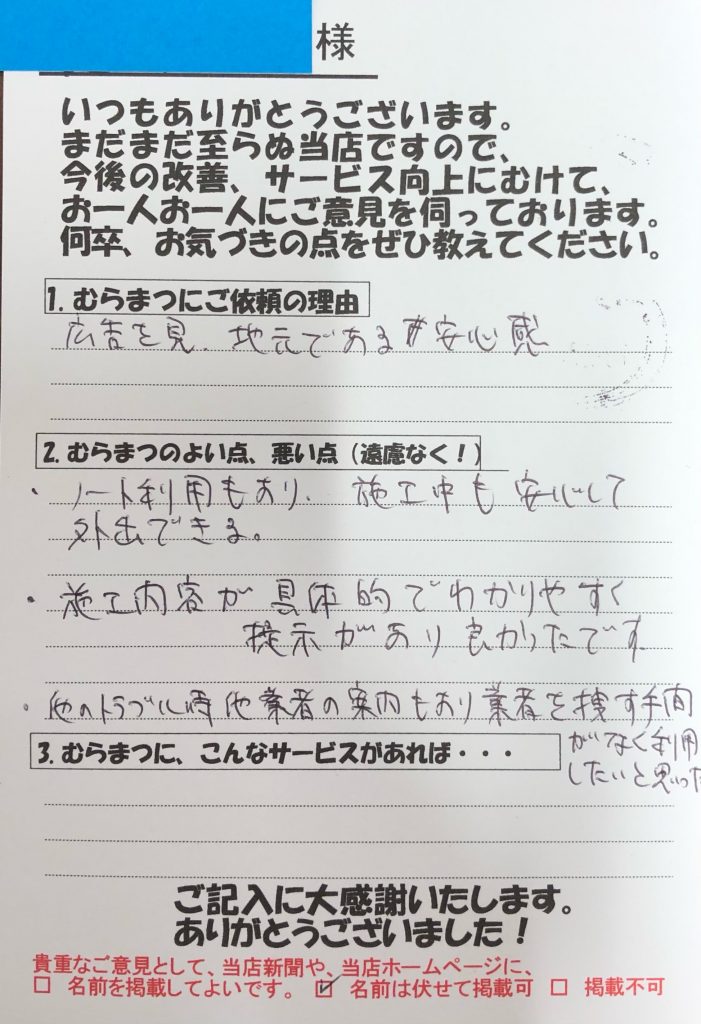 様
いつもありがとうございます。
まだまだ至らぬ当店ですので、
今後の改善、サービス向上にむけて、
お一人お一人にご意見を伺っております。
何卒、お気づきの点をぜひ教えてください。
1. むらまつにご依頼の理由
広告を見、地元である安心感
2. むらまつのよい点、悪い点（遠慮なく！）
・ノート利用もあり、施工中も安心して
外出できる。
・施工内容が具体的でわかりやすく
提示があり良かったです
・他のトラブル時他業者の案内もあり業者を捜す手間
がなく利用
したいと思った
3. むらまつに、こんなサービスがあれば・・・
ご記入に大感謝いたします。
ありがとうございました！
貴重なご意見として、当店新聞や、当店ホームページに、
□ 名前を掲載してよいです。 ☑ 名前は伏せて掲載可 □ 掲載不可